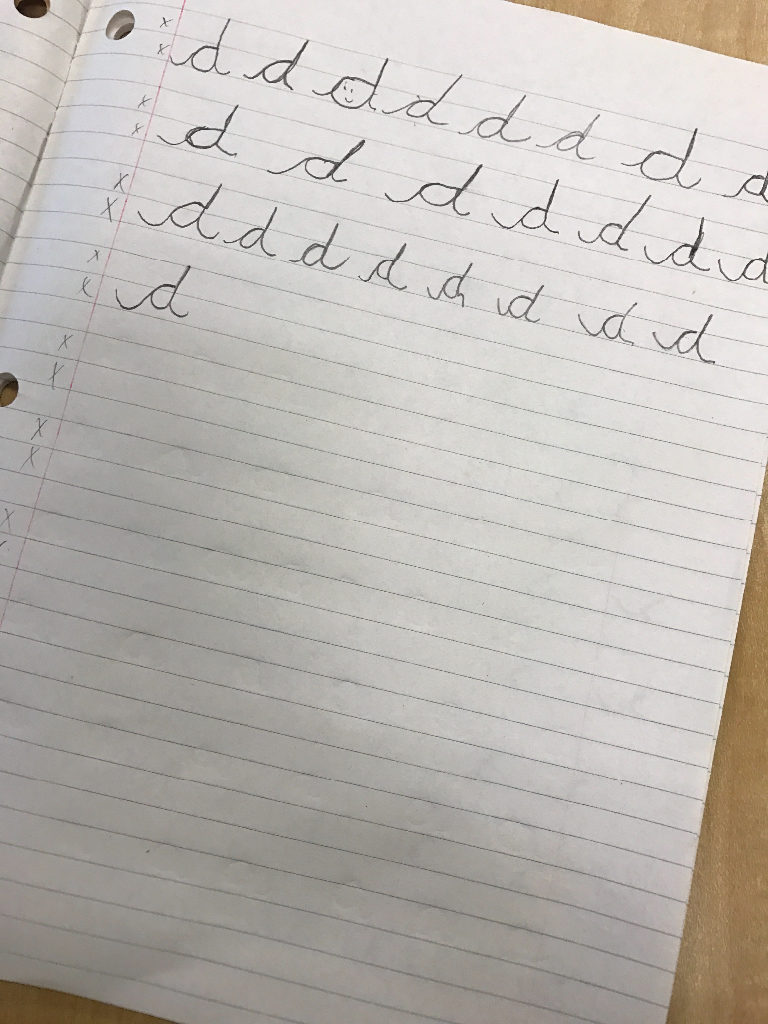 x
x d d d d d d d d
x
x d d d d d d d
x
x d d d d d d d d
x
x d
x
x
x
x
x